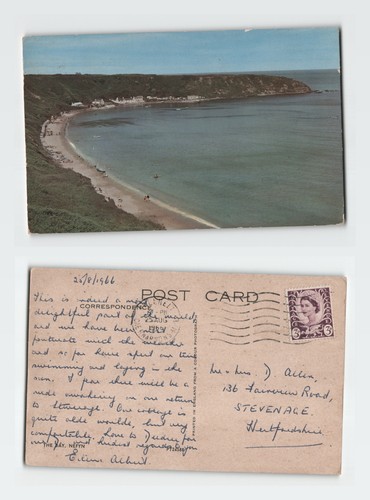 25/8/1966
CORRESPONDENCE
POST CARD
This is indeed a most
delightful part of the world,
and we have been very
fortunate with the weather
and so far have spent our time
swimming and lazing in the
sun. I fear there will be a
rude awakening on our return
to Stevenage. Our cottage is
quite olde worlde, but very
comfortable. Love to Deirdre from
my kindest regards to you
Albert
THE BAY, NEFYN
Mr & Mrs. D. Allen,
136 Fairview Road,
STEVENAGE,
Hertfordshire
3D
3D